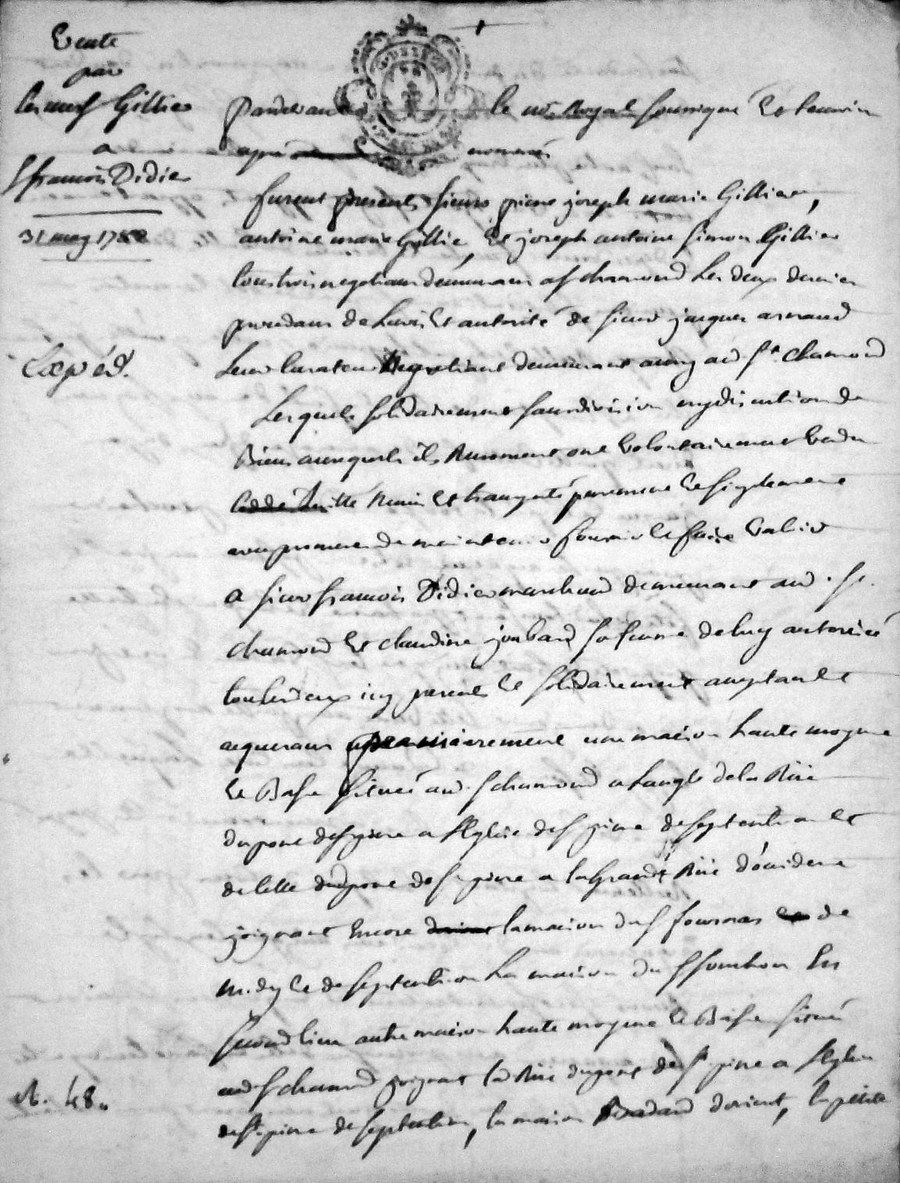 Vente
par
les srs Gillier
a
Sr francois Didier
31 may 1788
Expéd.
N. 48.
Pardevant le no.re Royal soussigné Et temoins
apres nommés
furent presents sieurs pierre joseph marie Gillier,
antoine marie Gillier, Et joseph antoine simon Gillier
tous trois negotians demeurans a st chamond Les deux derniers
procedans de Lavis Et autorité de sieur jacques arnaud
Leur Curateur Negotiant demeurant aussy aud. st. chamond
Lesquels solidairement sans division ny discution de
Biens auxquels ils Renoncent ont volontairement vendu
Ceddé quitté Remis Et transporté purement Et simplement
avec promesse de maintenir fournir Et faire valoir
a sieur francois Didier marchand demeurant aud. st.
chamond Et claudine joubard sa femme de luy autorisée
tous Les deux icy presents Et solidairement acceptants Et
acquerans premierement une maison haute moyenne
Et Basse situeé aud. st chamond a Langle de la Rüe
du pont de st pierre a l'Eglise de st pierre de septentrion Et
de Celle du pont de st pierre a la Grande Rüe d'occident
joignant Encore la maison du sr fournas de
midy Et de septentrion La maison du sr En
second lieu autre maison haute moyenne Et Basse situeé
aud. st chamond joignant la Rüe du pont de st pierre a l'Eglise
de st. pierre de septentrion, la maison d'orient, la petite